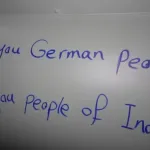 you German Peo
you people of Ind